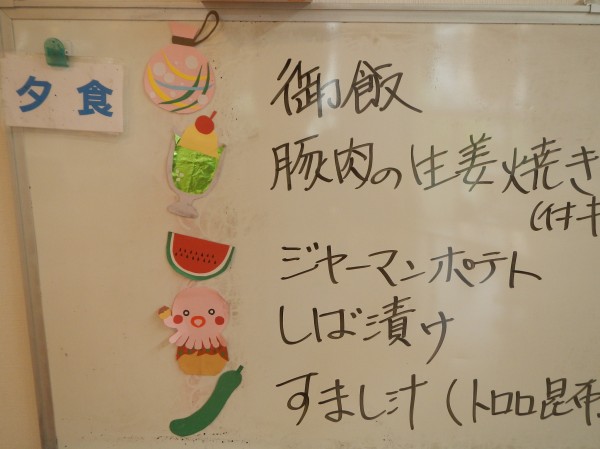 夕食
御飯
豚肉の生姜焼き
(付キ
ジャーマンポテト
しば漬け
すまし汁(トロロ昆布